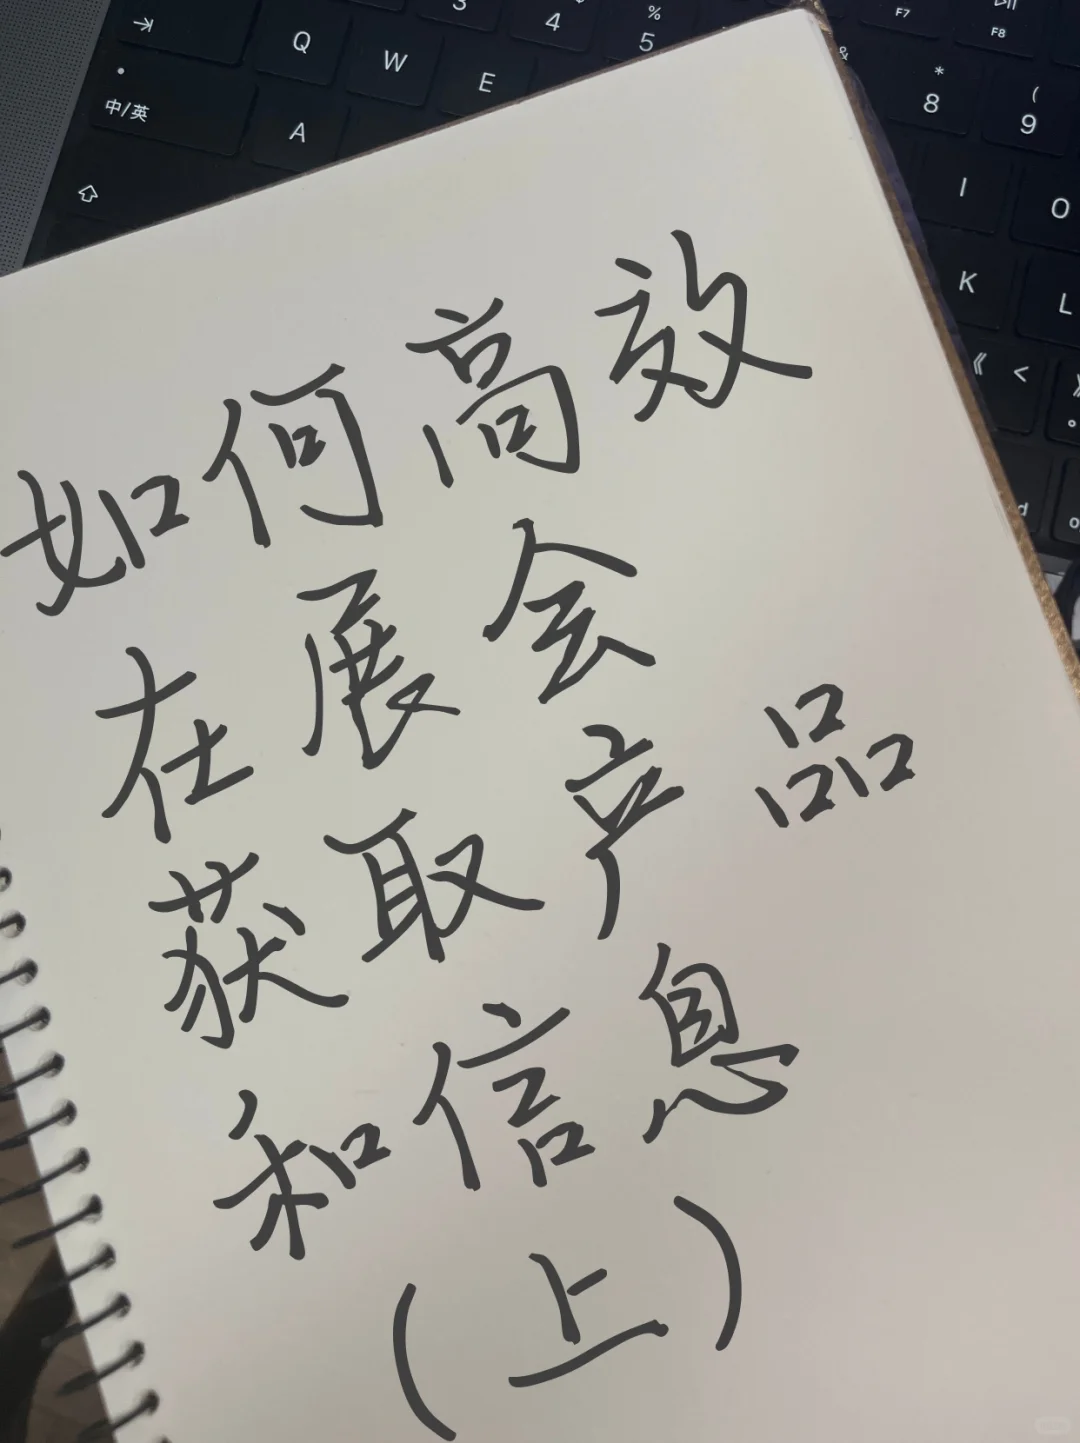 3
4
%
5
F7
F8
Q
W
E
&
*
8
(
9
中/英
A
I
O
K
L
《 <
d
如何高效
在展会
获取产品
和信息
(上)